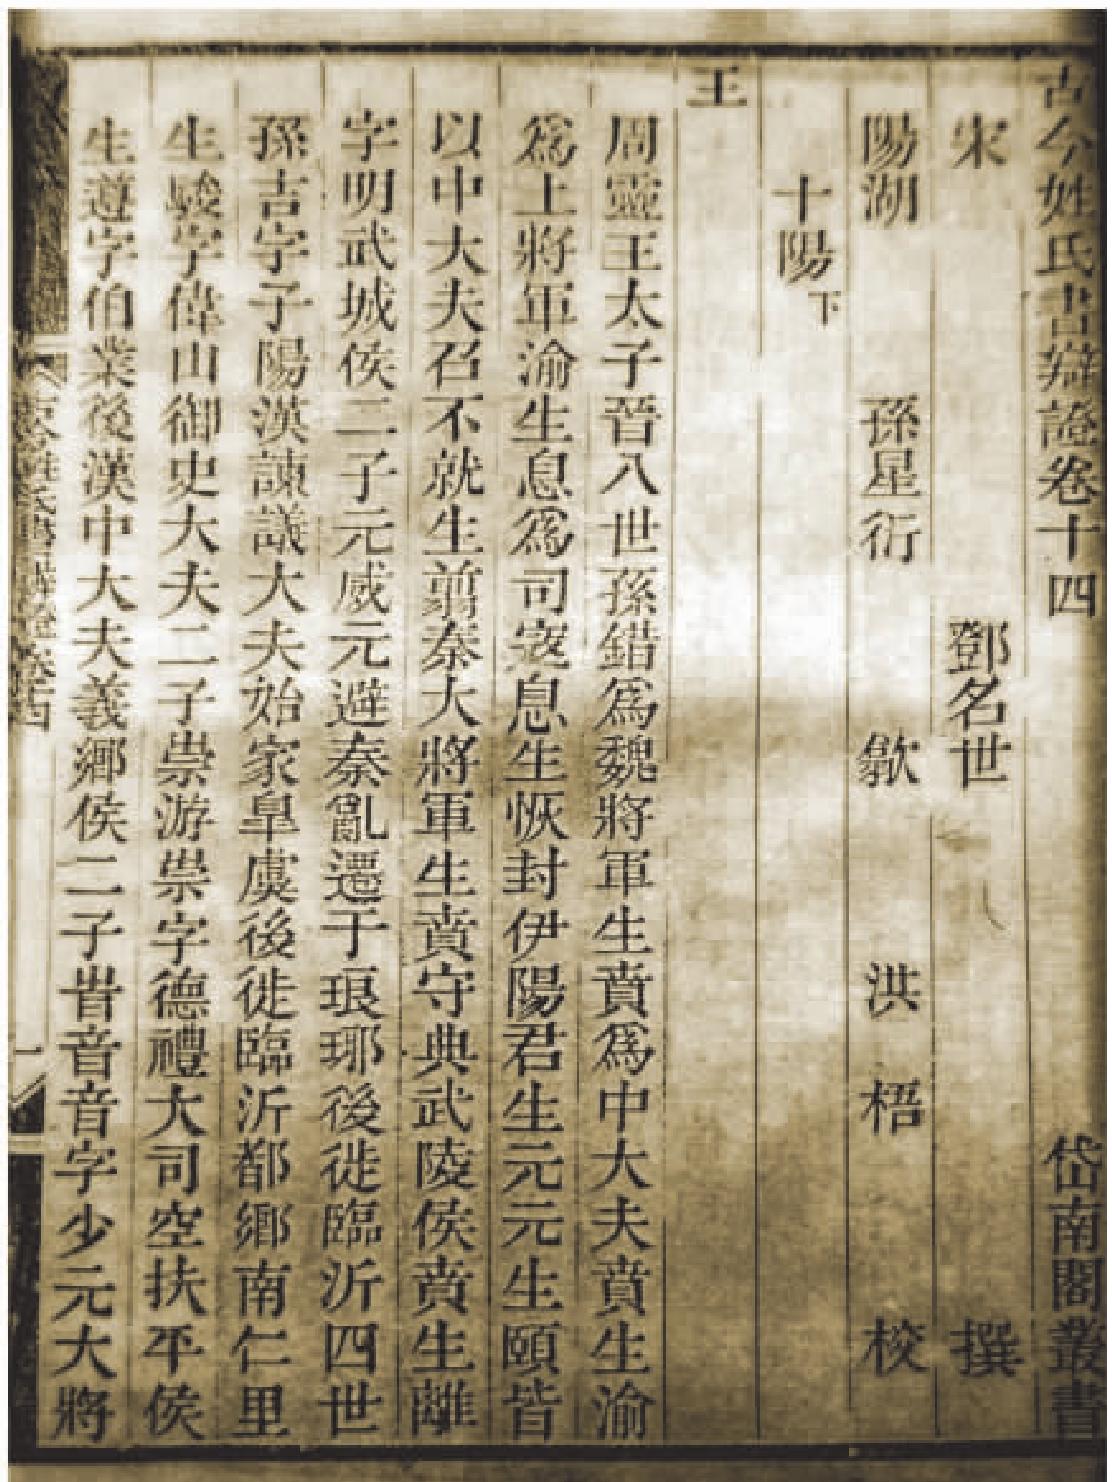 古今姓氏書辯證卷十四 岱南閣叢書
宋 鄧名世 撰
陽湖 孫星衍 歙 洪梧 校
十陽下
王
周靈王太子晉八世孫錯爲魏將軍生賁爲中大夫賁生渝
爲上將軍渝生息爲司寇息生恢封伊陽君生元元生頤皆
以中大夫召不就生翦秦大將軍生賁守典武陵侯賁生離
字明武城侯二子元威元避秦亂遷于琅琊後徙臨沂四世
孫吉字子陽漢諫議大夫始家臯虞後徙臨沂都鄉南仁里
生駿字偉山御史大夫二子崇游崇字德禮大司空扶平侯
生遵字伯業後漢中大夫義鄉侯二子峕音音字少元大將